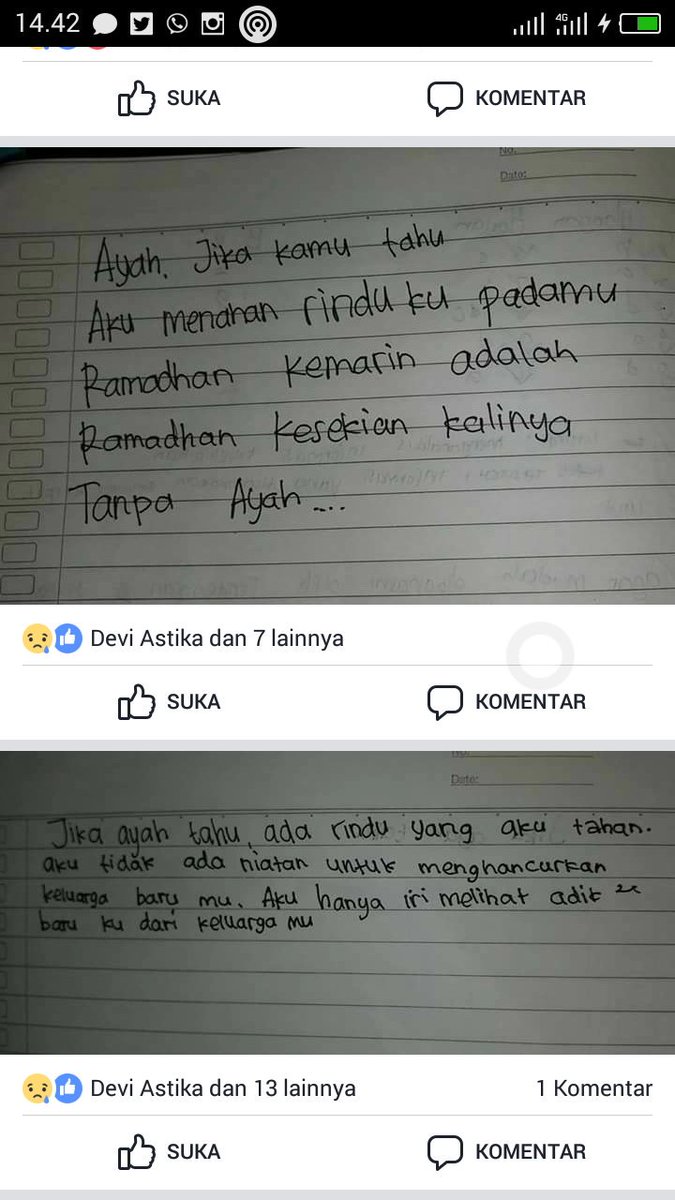 14.42
4G
SUKA
KOMENTAR
No.
Date:
Ayah. Jika kamu tahu
Aku menahan rindu ku padamu
Ramadhan kemarin adalah
Ramadhan kesekian kalinya
Tanpa Ayah...
Devi Astika dan 7 lainnya
SUKA
KOMENTAR
No.
Date:
Jika ayah tahu, ada rindu yang aku tahan.
aku tidak ada niatan untuk menghancurkan
keluarga baru mu. Aku hanya iri melihat adik
baru ku dari keluarga mu
Devi Astika dan 13 lainnya
1 Komentar
SUKA
KOMENTAR